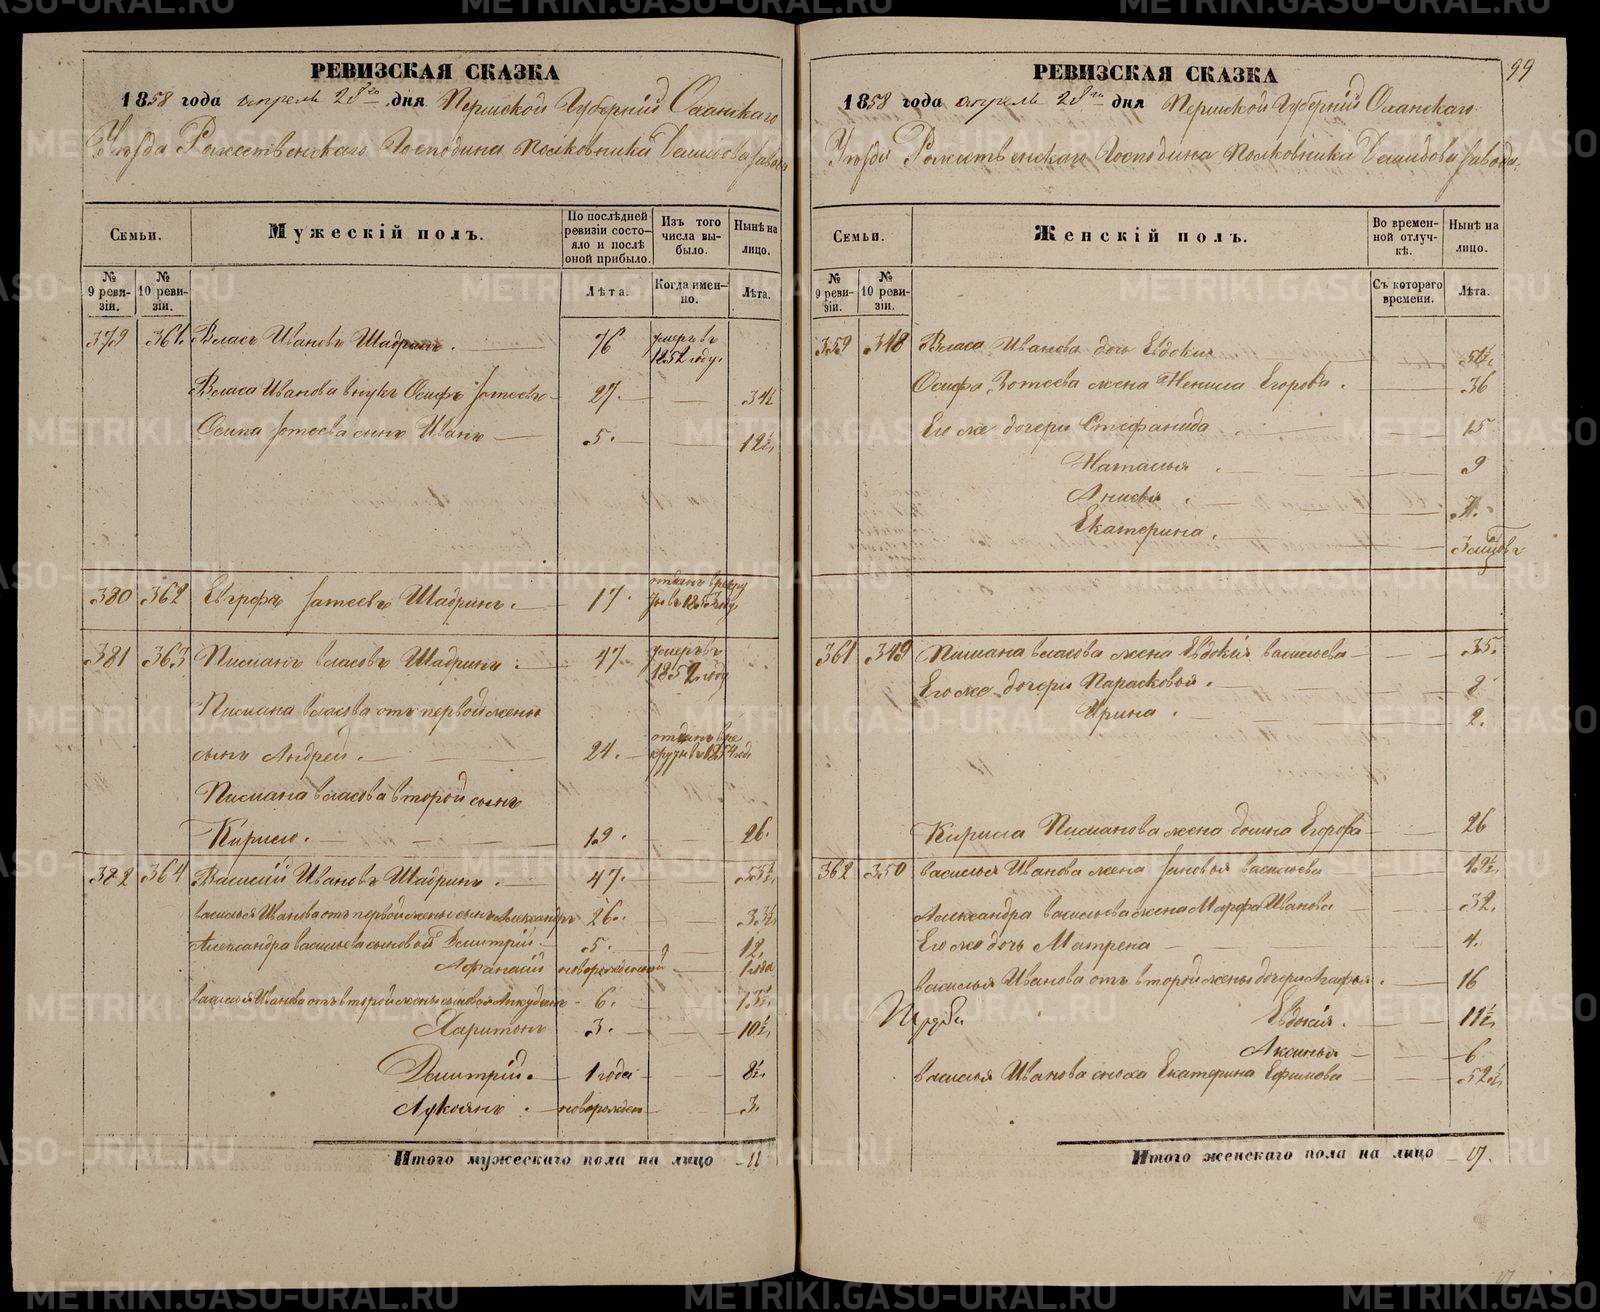 РЕВИЗСКАЯ СКАЗКА
1858 года апреля 28го дня Пермской Губернiи Оханскаго
Уезда Рожественскаго Господина Полковника Демидова завода
Семьи.
Мужескiй полъ.
По послѣдней ревизiи состояло и послѣ оной прибыло.
Изъ того числа выбыло.
Нынѣ на лицо.
№ 9 ревизiи.
№ 10 ревизiи.
Лѣта.
Когда именно.
Лѣта.
379 361. Власъ Ивановъ Шадринъ. 76 умеръ въ 1852 году.
Власа Иванова внукъ Осифъ Зотеевъ 27. 34½
Осипа Зотеева сынъ Иванъ 5. 12½
380 362 Евграфъ Зотеевъ Шадринъ. 17. отданъ в рекруты в 1853 году
381 363 Пиманъ Власовъ Шадринъ. 47 умеръ въ 1852 году
Пимана Власова отъ первой жены
сынъ Андрей. 24. отданъ в рекруты в 1854 годе
Пимана Власова второй сынъ
Кирило. 19. 26.
382 364 Василiй Ивановъ Шадринъ. 47. 55½
Василья Иванова отъ первой жены сынъ Александръ 26. 33½
Александра Васильева сыновья Дмитрiй 5. 12.
Афанасiй новорожденной 1 года
Василья Иванова отъ второй жены сыновья Анкудинъ 6. 13½
Харитонъ 3. 10½
Дмитрiй. 1 года 8½
Лукоянъ. новорожден 3.
Итого мужескаго пола на лицо 11
99
РЕВИЗСКАЯ СКАЗКА
1858 года апреля 28го дня Пермской Губернiи Оханскаго
Уезда Рожественскаго Господина Полковника Демидова завода.
Семьи.
Женскiй полъ.
Во временной отлучкѣ.
Нынѣ на лицо.
№ 9 ревизiи.
№ 10 ревизiи.
Съ котораго времени.
Лѣта.
359 348 Власа Иванова дочь Евдокия 51½
Осифа Зотеева жена Ненила Егорова. 36
Его же дочери Стефанида 15
Наталья. 9
Анисья.
Екатерина. 3 месяцовъ
361 349 Пимана Власова жена Евдокiя Васильева 35.
Его же дочери Парасковья. 8
Ирина. 2.
Кирила Пиманова жена Домна Егорова 26
362 350 Василья Иванова жена Зиновья Васильева 42½
Александра Васильева жена Марфа Иванова 32.
Его же дочь Матрена 4.
Василья Иванова отъ второй жены дочери Агафья. 16
Евдокiя. 11½
Аксинья 6
Василья Иванова сноха Екатерина Ефимова 52½
Итого женскаго пола на лицо 17.
METRIKI.GASO-URAL.RU